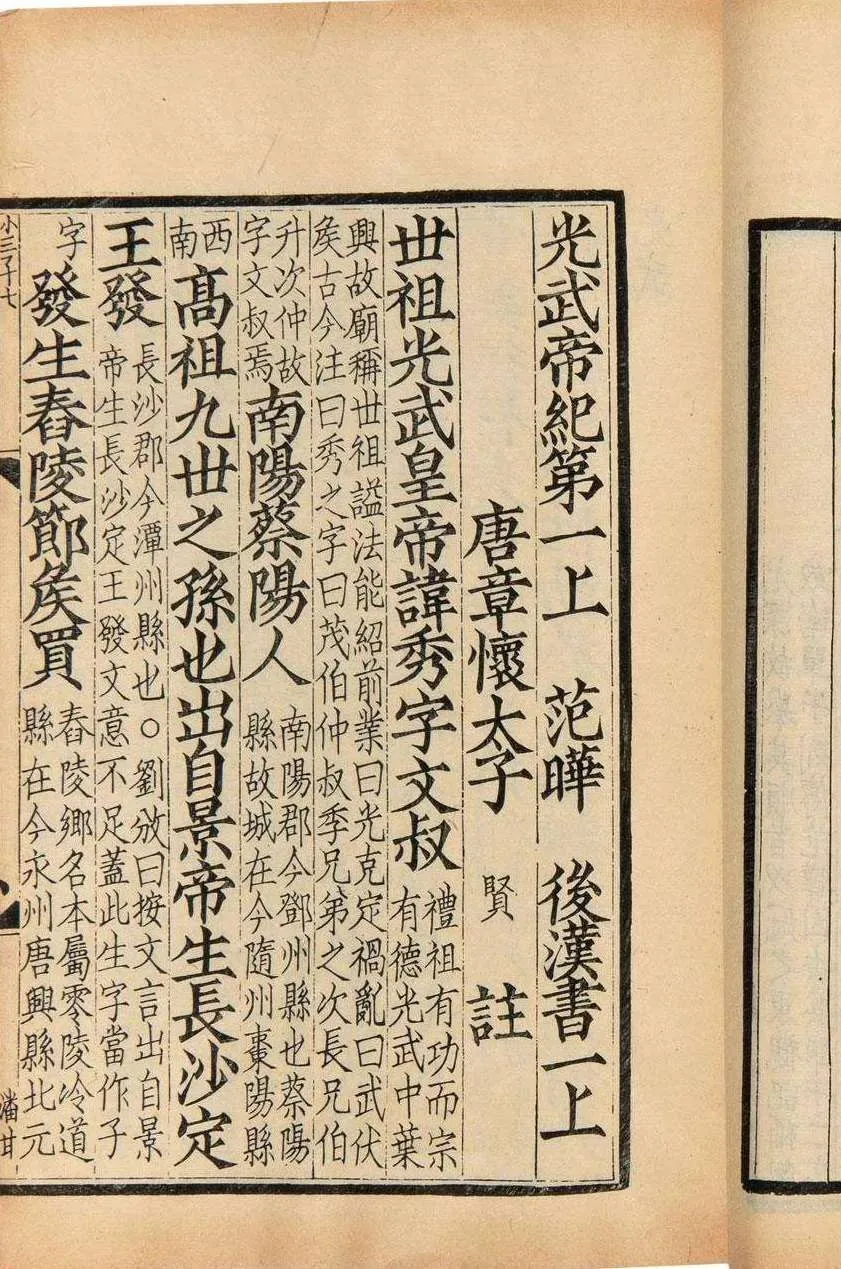 光武帝紀第一上 范曄 後漢書一上
唐章懷太子 賢 註
丗祖光武皇帝諱秀字文叔 禮祖有功而宗有德光武中葉
興故廟稱丗祖謚法能紹前業曰光克定禍亂曰武伏
矦古今注曰秀之字曰茂伯仲叔季兄弟之次長兄伯
升次仲故字文叔焉 南陽蔡陽人 南陽郡今鄧州縣也蔡陽縣故城在今隨州棗陽縣
西南 髙祖九丗之孫也出自景帝生長沙定
王發 長沙郡今潭州縣也○劉攽曰按文言出自景帝生長沙定王發文意不足蓋此生字當作子
字 發生舂陵節矦買 舂陵鄉名本屬零陵泠道縣在今永州唐興縣北元